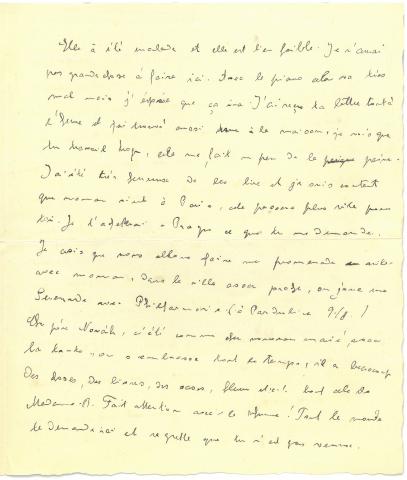 Elle a été malade et elle est bien faible. Je n'aurai
pas grande chose à faire ici. Avec le piano cela va très
mal mais j'espère que ça ira. J'ai reçu ta lettre tout à
l'heure et j'ai trouvé aussi à la maison, je vois que
tu travail trop, cela me fait un peu de la peine.
J'ai été très heureuse de les lire et je suis content
que maman vient à Paris, cela passera plus vite pour
toi. Je t'achetterai à Prague ce que tu me demande.
Je crois que nous allons faire une promenade en
avec maman, dans la ville assez proche, on joue une
Serenade avec Philharmonie (à Pardubice 9/8.)
Chez père Novák, c'était comme du nouveau marié, avec
la tante on s'embrasse tout le temps, il a beaucoup
des roses, des fleurs etc.! tout cela de
Madame B. Fait attention avec le rhume! Tout le monde
te demande ici et regrette que tu n'est pas venue.